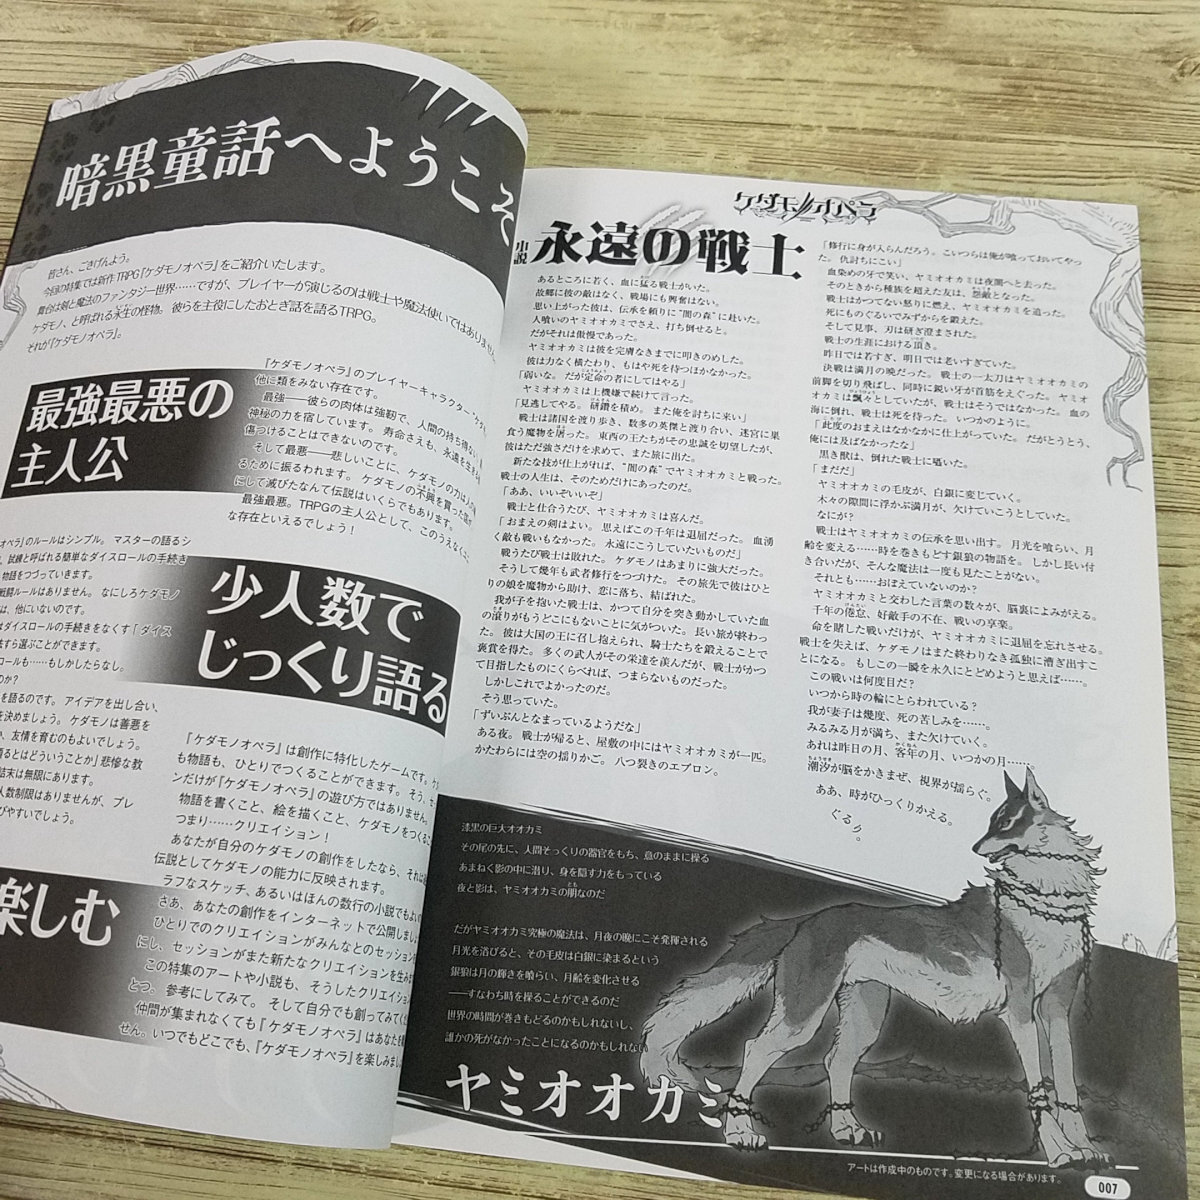 暗黒童話へようこそ
皆さん、ごきげんよう。
今回の特集では新作TRPG『ケダモノオペラ』をご紹介いたします。
舞台は剣と魔法のファンタジー世界……ですが、プレイヤーが演じるのは戦士や魔法使いではありません
ケダモノ、と呼ばれる永生の怪物。彼らを主役にしたおとぎ話を語るTRPG。
それが『ケダモノオペラ』。
最強最悪の
主人公
『ケダモノオペラ』のプレイヤーキャラクター
他に類をみない存在です。
最強――彼らの肉体は強靭で、人間の持ち得ない
神秘の力を宿しています。寿命さえも、永遠を生き
傷つけることはできないのです。
そして最悪――悲しいことに、ケダモノの力は人の
るために振るわれます。ケダモノの不興を買った国が
にして滅びたなんて伝説はいくらでもあります。
最強最悪。TRPGの主人公として、このうえなくユニ
な存在といえるでしょう！
オペラ』のルールはシンプル。マスターの語るシ
、試練と呼ばれる簡単なダイスロールの手続き
物語をつづっていきます。
戦闘ルールはありません。なにしろケダモノ
は、他にいないのです。
はダイスロールの手続きをなくす「ダイス
法すら選ぶことができます。
ロールも……もしかしたらなし。
のか？
を語るのです。アイデアを出し合い、
を決めましょう。ケダモノは善悪を
、友情を育むのもよいでしょう。
語るとはどういうことか」悲惨な教
結末は無限にあります。
人数制限はありませんが、プレ
びやすいでしょう。
少人数で
じっくり語る
『ケダモノオペラ』は創作に特化したゲームです。ケダ
も物語も、ひとりでつくることができます。そう、セ
ンだけが『ケダモノオペラ』の遊び方ではありません。
物語を書くこと、絵を描くこと、ケダモノをつくるこ
つまり……クリエイション！
あなたが自分のケダモノの創作をしたなら、それは
伝説としてケダモノの能力に反映されます。
ラフなスケッチ、あるいはほんの数行の小説でもよい
さあ、あなたの創作をインターネットで公開しましょ
ひとりでのクリエイションがみんなとのセッション
にし、セッションがまた新たなクリエイションを生み
この特集のアートや小説も、そうしたクリエイション
とつ。参考にしてみて。そして自分でも創ってみてく
仲間が集まれなくても『ケダモノオペラ』はあなたを
せん。いつでもどこでも、『ケダモノオペラ』を楽しみまし
楽しむ
ケダモノオペラ
小説
永遠の戦士
あるところに若く、血に猛る戦士がいた。
故郷に彼の敵はなく、戦場にも興奮はない。
思い上がった彼は、伝承を頼りに“闇の森”に赴いた。
人喰いのヤミオオカミでさえ、打ち倒せると。
だがそれは傲慢であった。
ヤミオオカミは彼を完膚なきまでに叩きのめした。
彼は力なく横たわり、もはや死を待つほかなかった。
「弱いな。だが定命の者にしてはやる」
ヤミオオカミは上機嫌で続けて言った。
「見逃してやる。研鑽を積め。また俺を討ちに来い」
戦士は諸国を渡り歩き、数多の英傑と渡り合い、迷宮に巣
食う魔物を屠った。東西の王たちがその忠誠を切望したが、
彼はただ強さだけを求めて、また旅に出た。
新たな技が仕上がれば、“闇の森”でヤミオオカミと戦った。
戦士の人生は、そのためだけにあったのだ。
「ああ、いいぞいいぞ」
戦士と仕合うたび、ヤミオオカミは喜んだ。
「おまえの剣はよい。思えばこの千年は退屈だった。血湧
く敵も戦いもなかった。永遠にこうしていたいものだ」
戦うたび戦士は敗れた。ケダモノはあまりに強大だった。
そうして幾年も武者修行をつづけた。その旅先で彼はひと
りの娘を魔物から助け、恋に落ち、結ばれた。
我が子を抱いた戦士は、かつて自分を突き動かしていた血
の滾りがもうどこにもないことに気がついた。長い旅が終わっ
た。彼は大国の王に召し抱えられ、騎士たちを鍛えることで
褒賞を得た。多くの武人がその栄達を羨んだが、戦士がかつ
て目指したものにくらべれば、つまらないものだった。
しかしこれでよかったのだ。
そう思っていた。
「ずいぶんとなまっているようだな」
ある夜。戦士が帰ると、屋敷の中にはヤミオオカミが一匹。
かたわらには空の揺りかご。八つ裂きのエプロン。
「修行に身が入らんだろう。こいつらは俺が喰っておいてやっ
た。仇討ちにこい」
血染めの牙で笑い、ヤミオオカミは夜闇へと去った。
そのときから種族を超えた友は、怨敵となった。
戦士はかつてない怒りに燃え、ヤミオオカミを追った。
死にものぐるいでみずからを鍛えた。
そして見事、刃は研ぎ澄まされた。
戦士の生涯における頂き。
昨日では若すぎ、明日では老いすぎていた。
決戦は満月の晩だった。戦士の一太刀はヤミオオカミの
前脚を切り飛ばし、同時に鋭い牙が首筋をえぐった。ヤミオ
オカミは飄々としていたが、戦士はそうではなかった。血の
海に倒れ、戦士は死を待った。いつかのように。
「此度のおまえはなかなかに仕上がっていた。だがとうとう、
俺には及ばなかったな」
黒き獣は、倒れた戦士に囁いた。
「まだだ」
ヤミオオカミの毛皮が、白銀に変じていく。
木々の隙間に浮かぶ満月が、欠けていこうとしていた。
なにが？
戦士はヤミオオカミの伝承を思い出す。月光を喰らい、月
齢を変える……時を巻きもどす銀狼の物語を。しかし長い付
き合いだが、そんな魔法は一度も見たことがない。
それとも……おぼえていないのか？
ヤミオオカミと交わした言葉の数々が、脳裏によみがえる。
千年の倦怠、好敵手の不在、戦いの享楽。
命を賭した戦いだけが、ヤミオオカミに退屈を忘れさせる。
戦士を失えば、ケダモノはまた終わりなき孤独に漕ぎ出すこ
とになる。もしこの一瞬を永久にとどめようと思えば……。
この戦いは何度目だ？
いつから時の輪にとらわれている？
我が妻子は幾度、死の苦しみを……。
みるみる月が満ち、また欠けていく。
あれは昨日の月、客年の月、いつかの月……。
潮汐が脳をかきまぜ、視界が揺らぐ。
ああ、時がひっくりかえる。
ぐるり。
漆黒の巨大オオカミ
その尾の先に、人間そっくりの器官をもち、意のままに操る
あまねく影の中に潜り、身を隠す力をもっている
夜と影は、ヤミオオカミの朋なのだ
だがヤミオオカミ究極の魔法は、月夜の晩にこそ発揮される
月光を浴びると、その毛皮は白銀に染まるという
銀狼は月の輝きを喰らい、月齢を変化させる
――すなわち時を操ることができるのだ
世界の時間が巻きもどるのかもしれないし、
誰かの死がなかったことになるのかもしれない
ヤミオオカミ
アートは作成中のものです。変更になる場合があります。
007